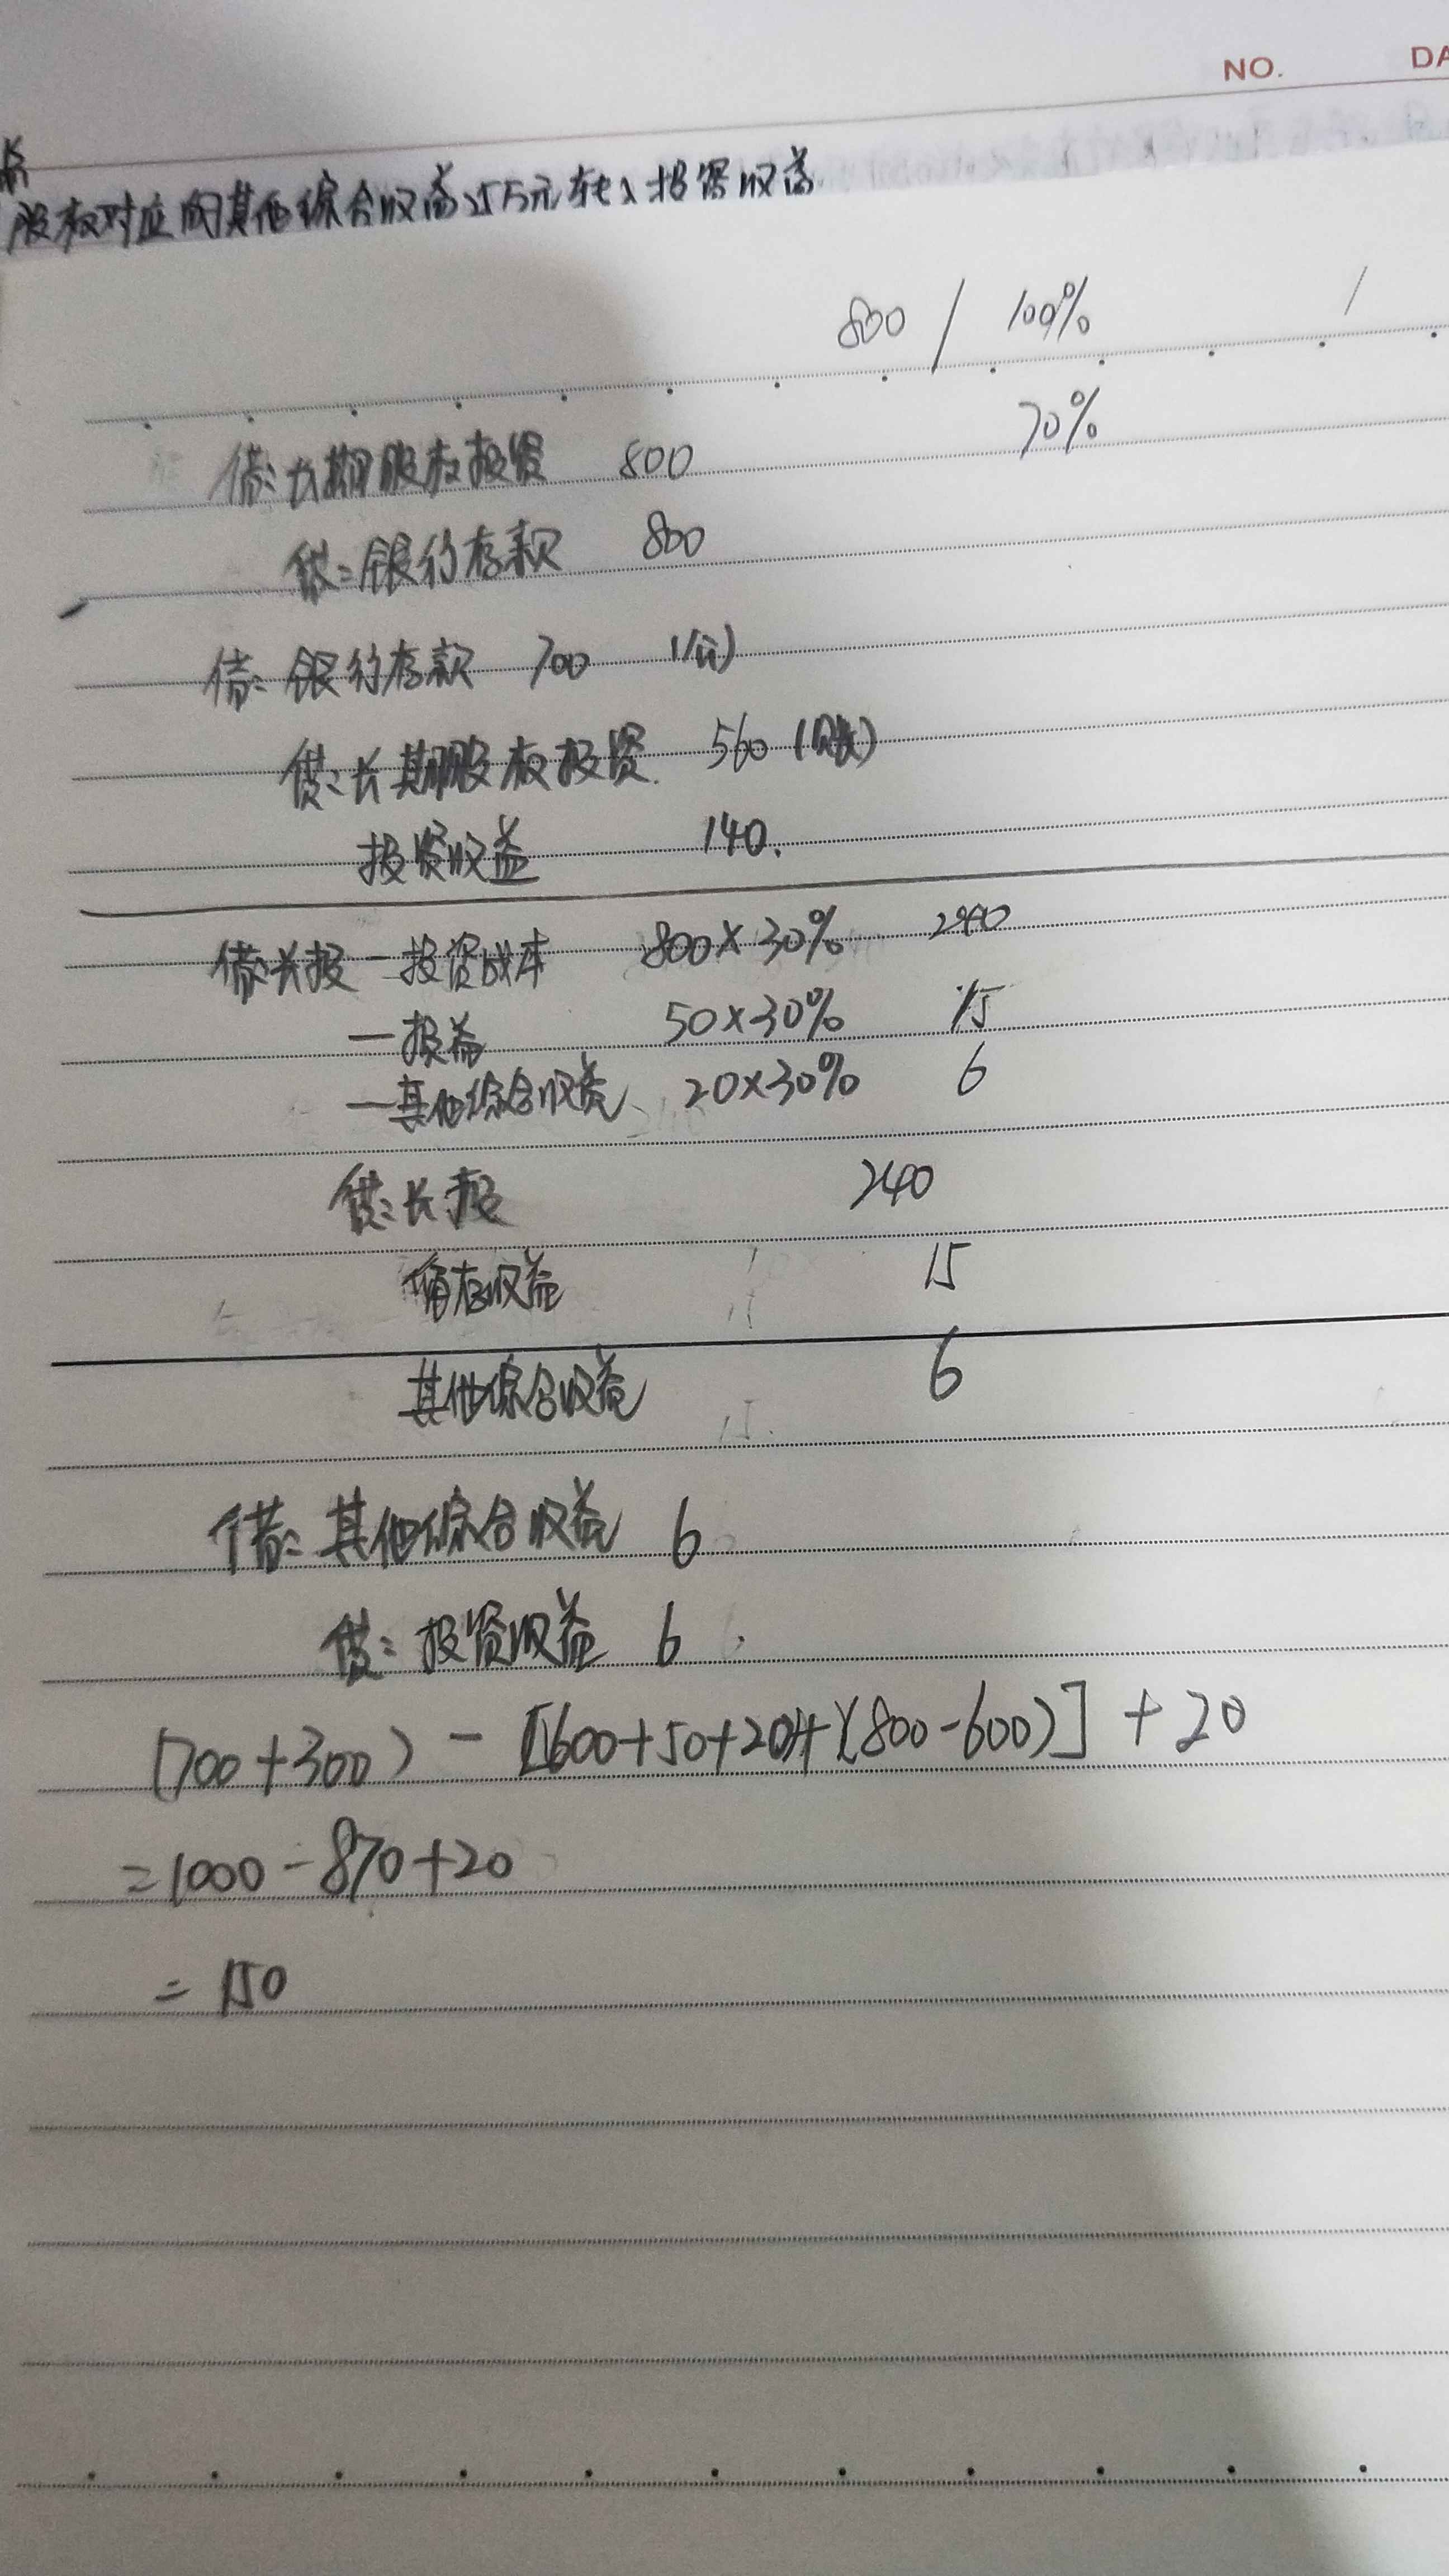 NO. DA
股权对应的其他综合收益25万元转入投资收益
800 / 100%
70%
借:长期股权投资 800
贷:银行存款 800
借:银行存款 700 (公)
贷:长期股权投资 560 (账)
投资收益 140.
借:长投-投资成本 800×30% 240
-损益 50×30% 15
-其他综合收益 20×30% 6
贷:长投 240
留存收益 15
其他综合收益 6
借:其他综合收益 6
贷:投资收益 6
(700+300)-[(600+50+20)+(800-600)]+20
=1000-870+20
=150